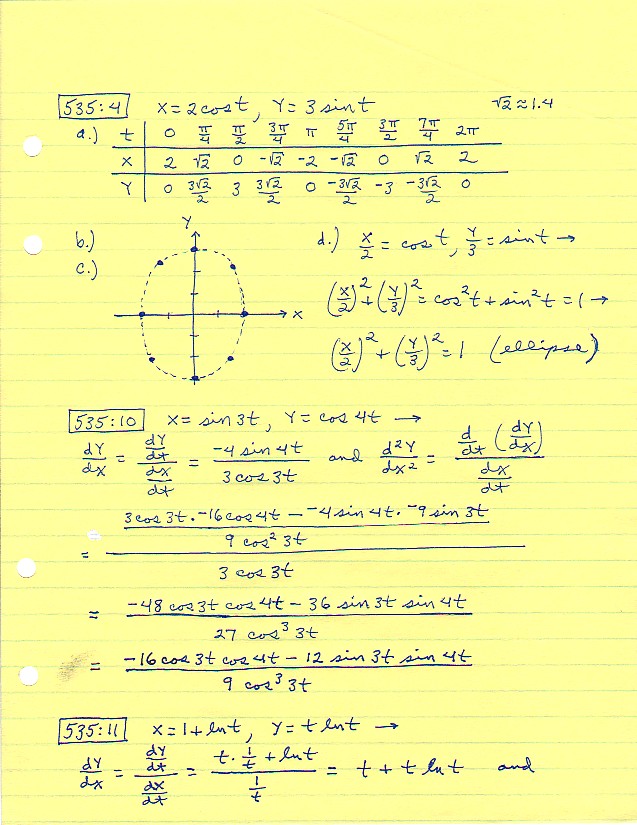 535:4 x = 2 cos t, y = 3 sin t √2 ≈ 1.4
a.) t | 0 π/4 π/2 3π/4 π 5π/4 3π/2 7π/4 2π
x | 2 √2 0 -√2 -2 -√2 0 √2 2
y | 0 3√2/2 3 3√2/2 0 -3√2/2 -3 -3√2/2 0
b.)
c.)
y
x
d.) x/2 = cos t, y/3 = sin t →
(x/2)² + (y/3)² = cos² t + sin² t = 1 →
(x/2)² + (y/3)² = 1 (ellipse)
535:10 x = sin 3t, y = cos 4t →
dy/dx = (dy/dt)/(dx/dt) = (-4 sin 4t)/(3 cos 3t) and d²y/dx² = (d/dt (dy/dx))/(dx/dt)
= ((3 cos 3t · -16 cos 4t - -4 sin 4t · -9 sin 3t)/(9 cos² 3t))/(3 cos 3t)
= (-48 cos 3t cos 4t - 36 sin 3t sin 4t)/(27 cos³ 3t)
= (-16 cos 3t cos 4t - 12 sin 3t sin 4t)/(9 cos³ 3t)
535:11 x = 1 + ln t, y = t ln t →
dy/dx = (dy/dt)/(dx/dt) = (t · 1/t + ln t)/(1/t) = t + t ln t and